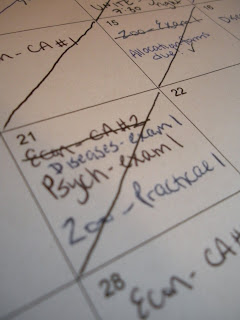 CA #1
15
Zoo - Exam 1
Allocation forms
due
21
Econ - CA #2
Diseases - exam 1
Psych - exam 1
Zoo - Practical 1
22
28
Econ - CA #